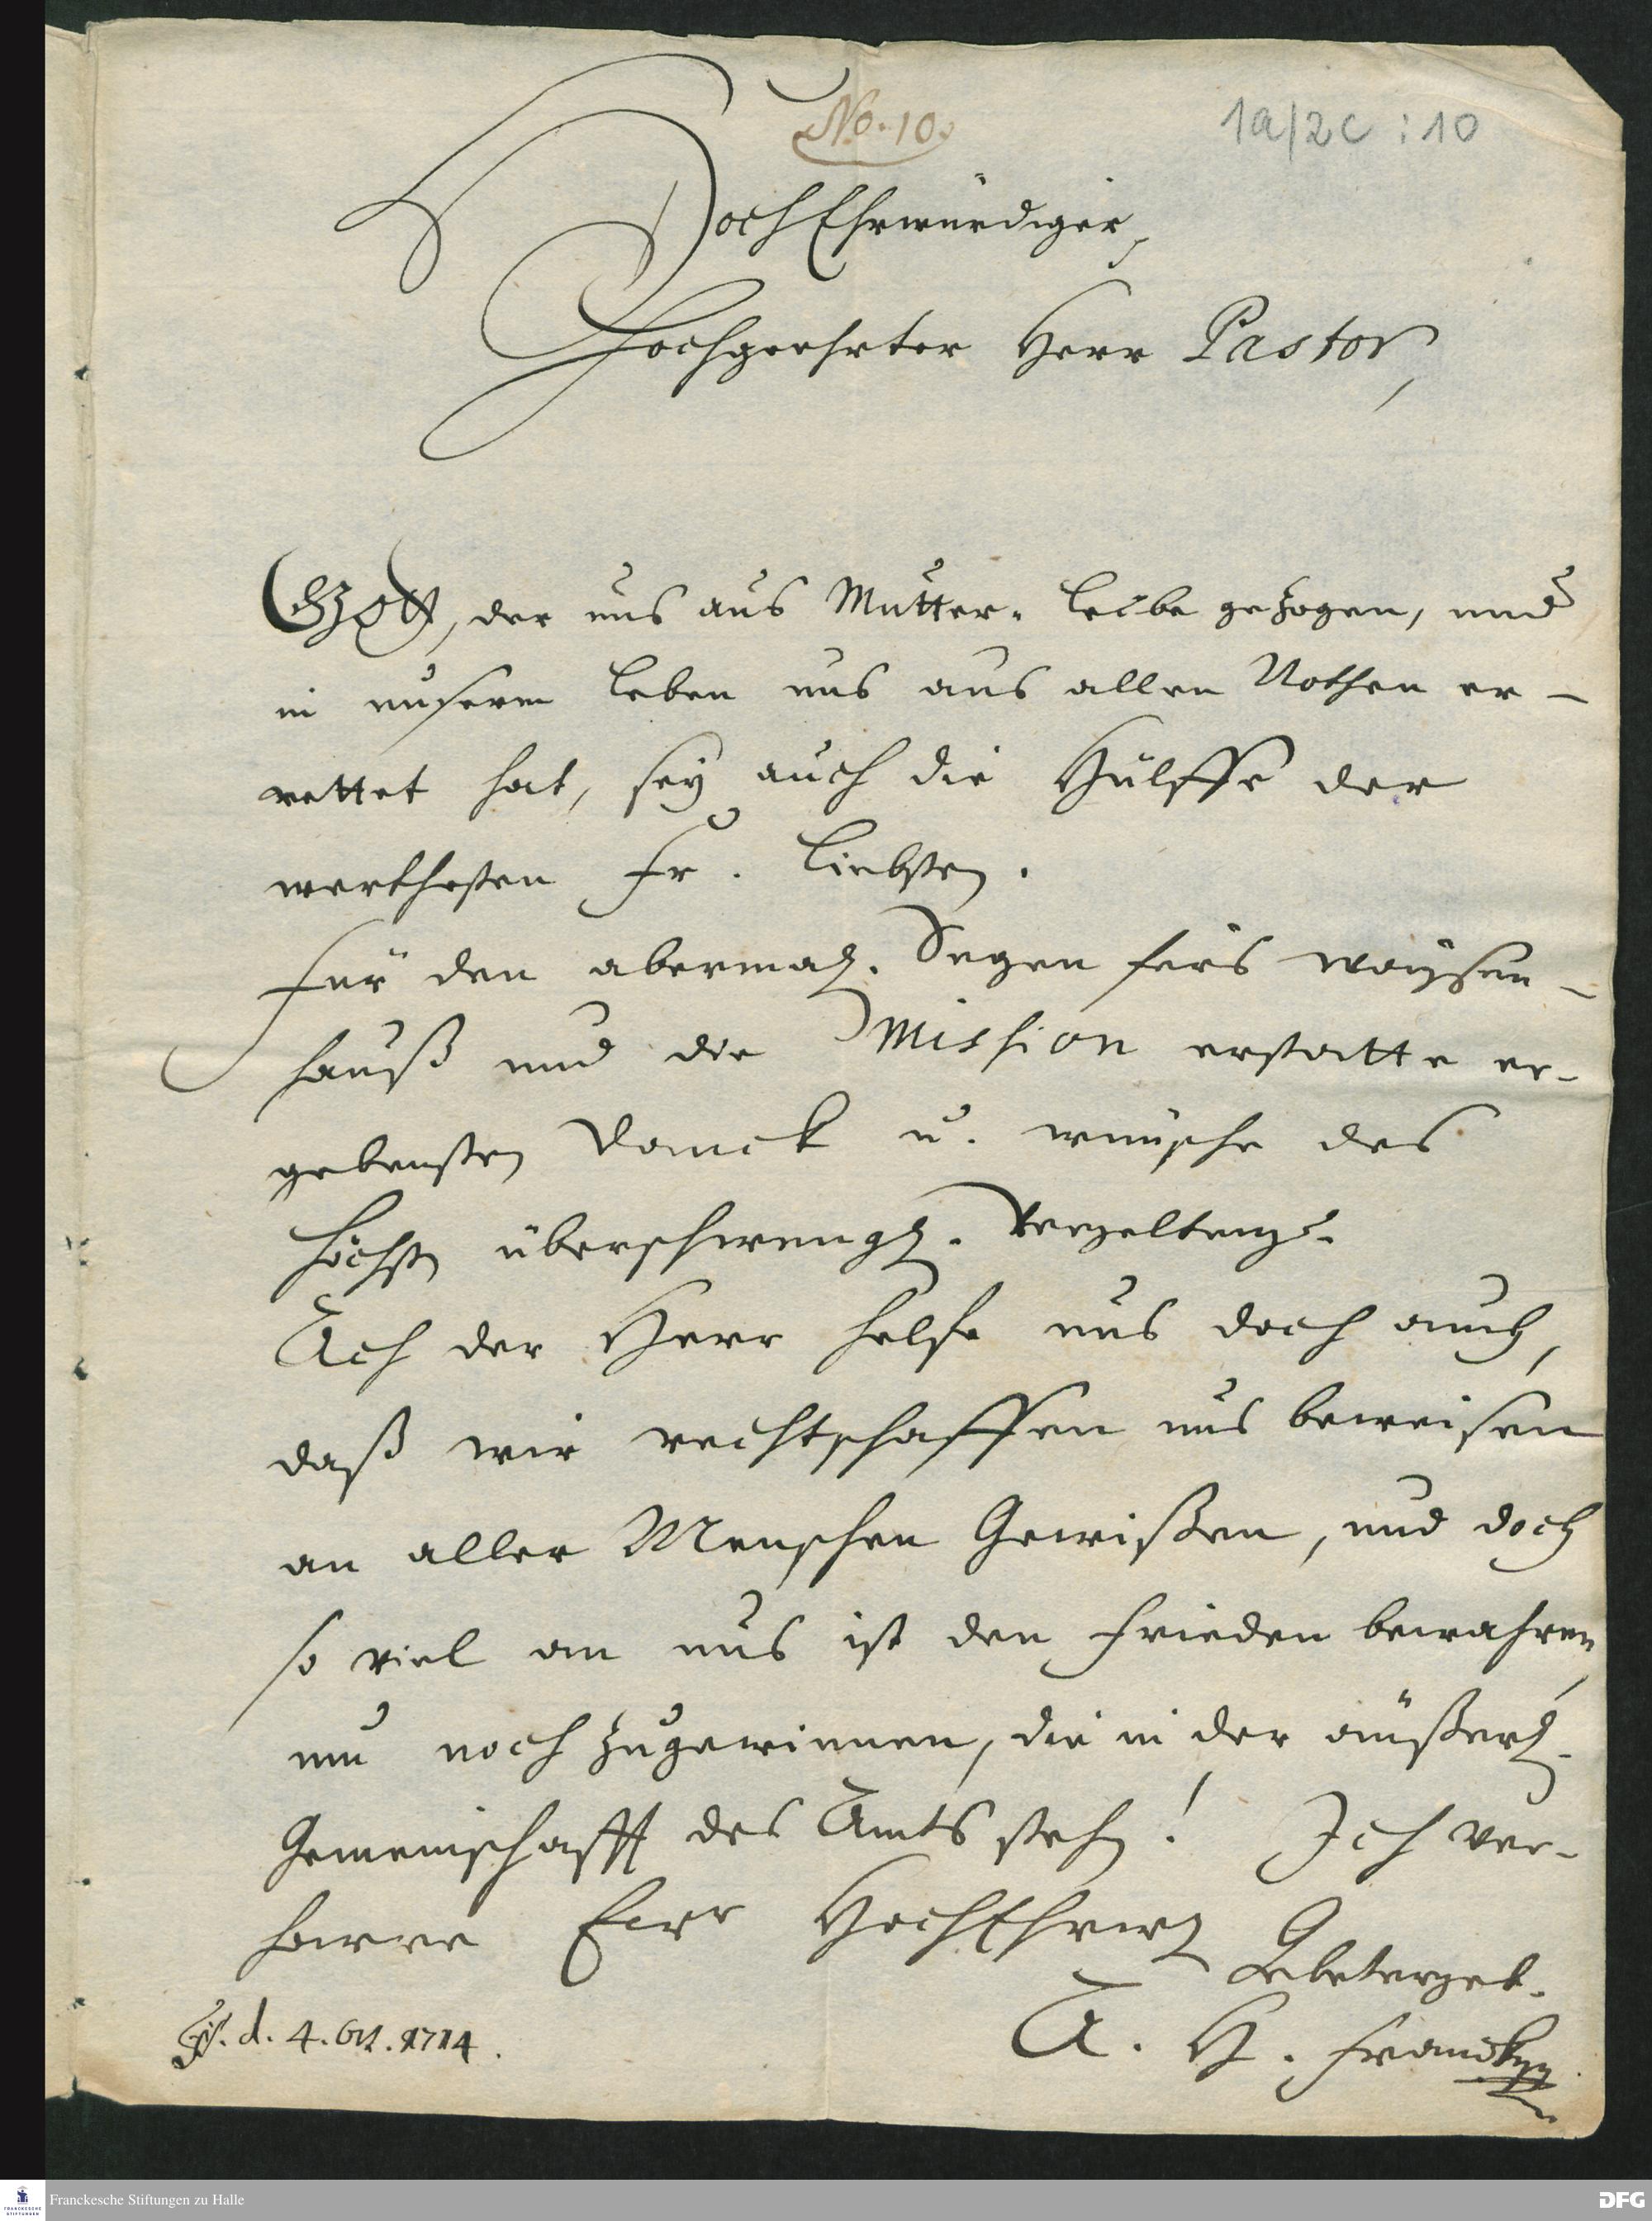 No. 10.
1a/2c : 10
HochEhrwürdiger,
Hochgeehrter Herr Pastor,
GOtt, der uns aus Mutter-Leibe gezogen, und
in unserm Leben uns aus allen Nöthen er-
rettet hat, sey auch die Hülffe der
werthesten Fr. Liebsten.
Für den abermal. Segen fürs Waysen-
hauß und die Mission erstatte er-
gebensten Danck u. wünsche des
Höchsten überschwengl. Vergeltung.
Ach der Herr helfe uns doch auch,
daß wir rechtschaffen uns beweisen
an aller Menschen Gewißen, und doch
so viel an uns ist den Frieden bewahren,
um noch zugewinnen, die in der äußerl.
Gemeinschafft des Amts stehen! Ich ver-
harre Ewr HochEhrw
Gebetergeb.
A. H. Francke
d. 4. Oct. 1714.
Franckesche Stiftungen zu Halle
FRANCKESCHE
STIFTUNGEN
DFG